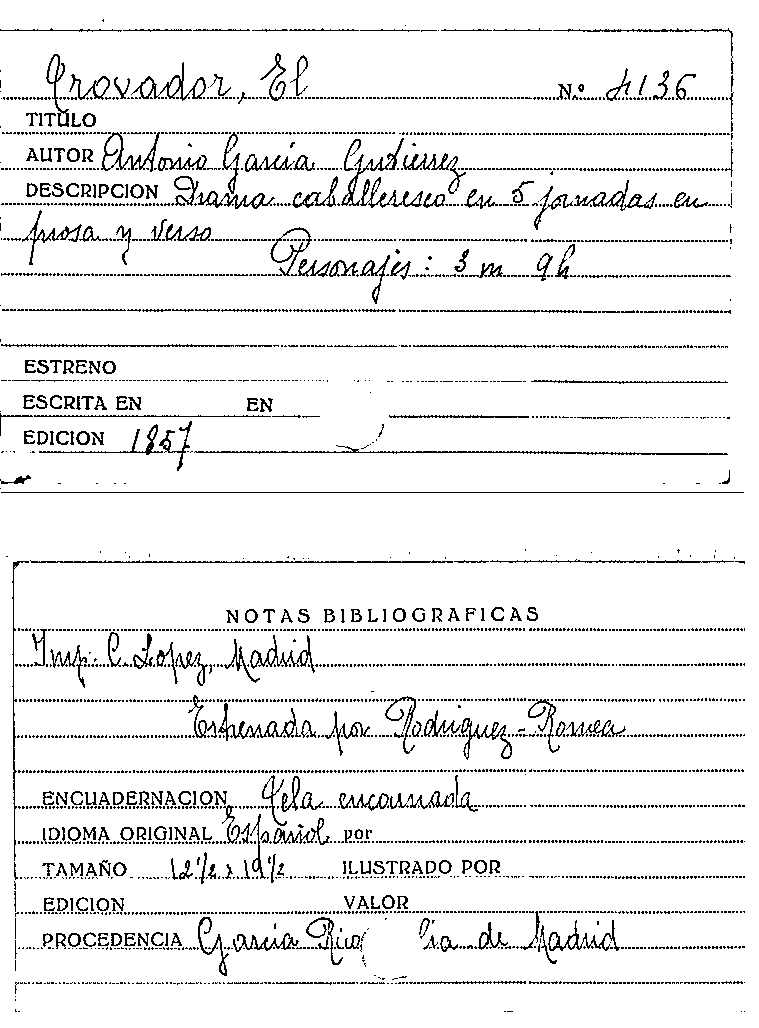 Trovador, El N.º 4136
TITULO
AUTOR Antonio García Gutierrez
DESCRIPCION Drama caballeresco en 5 jornadas en
prosa y verso
Personajes: 3 m 9 h
ESTRENO
ESCRITA EN EN
EDICION 1857
NOTAS BIBLIOGRAFICAS
Imp. C. Lopez, Madrid
Estrenada por Rodriguez-Romea
ENCUADERNACION Tela encarnada
IDIOMA ORIGINAL Español por
TAMAÑO 12 1/2 x 19 1/2 ILUSTRADO POR
EDICION VALOR
PROCEDENCIA Garcia Rico de Madrid